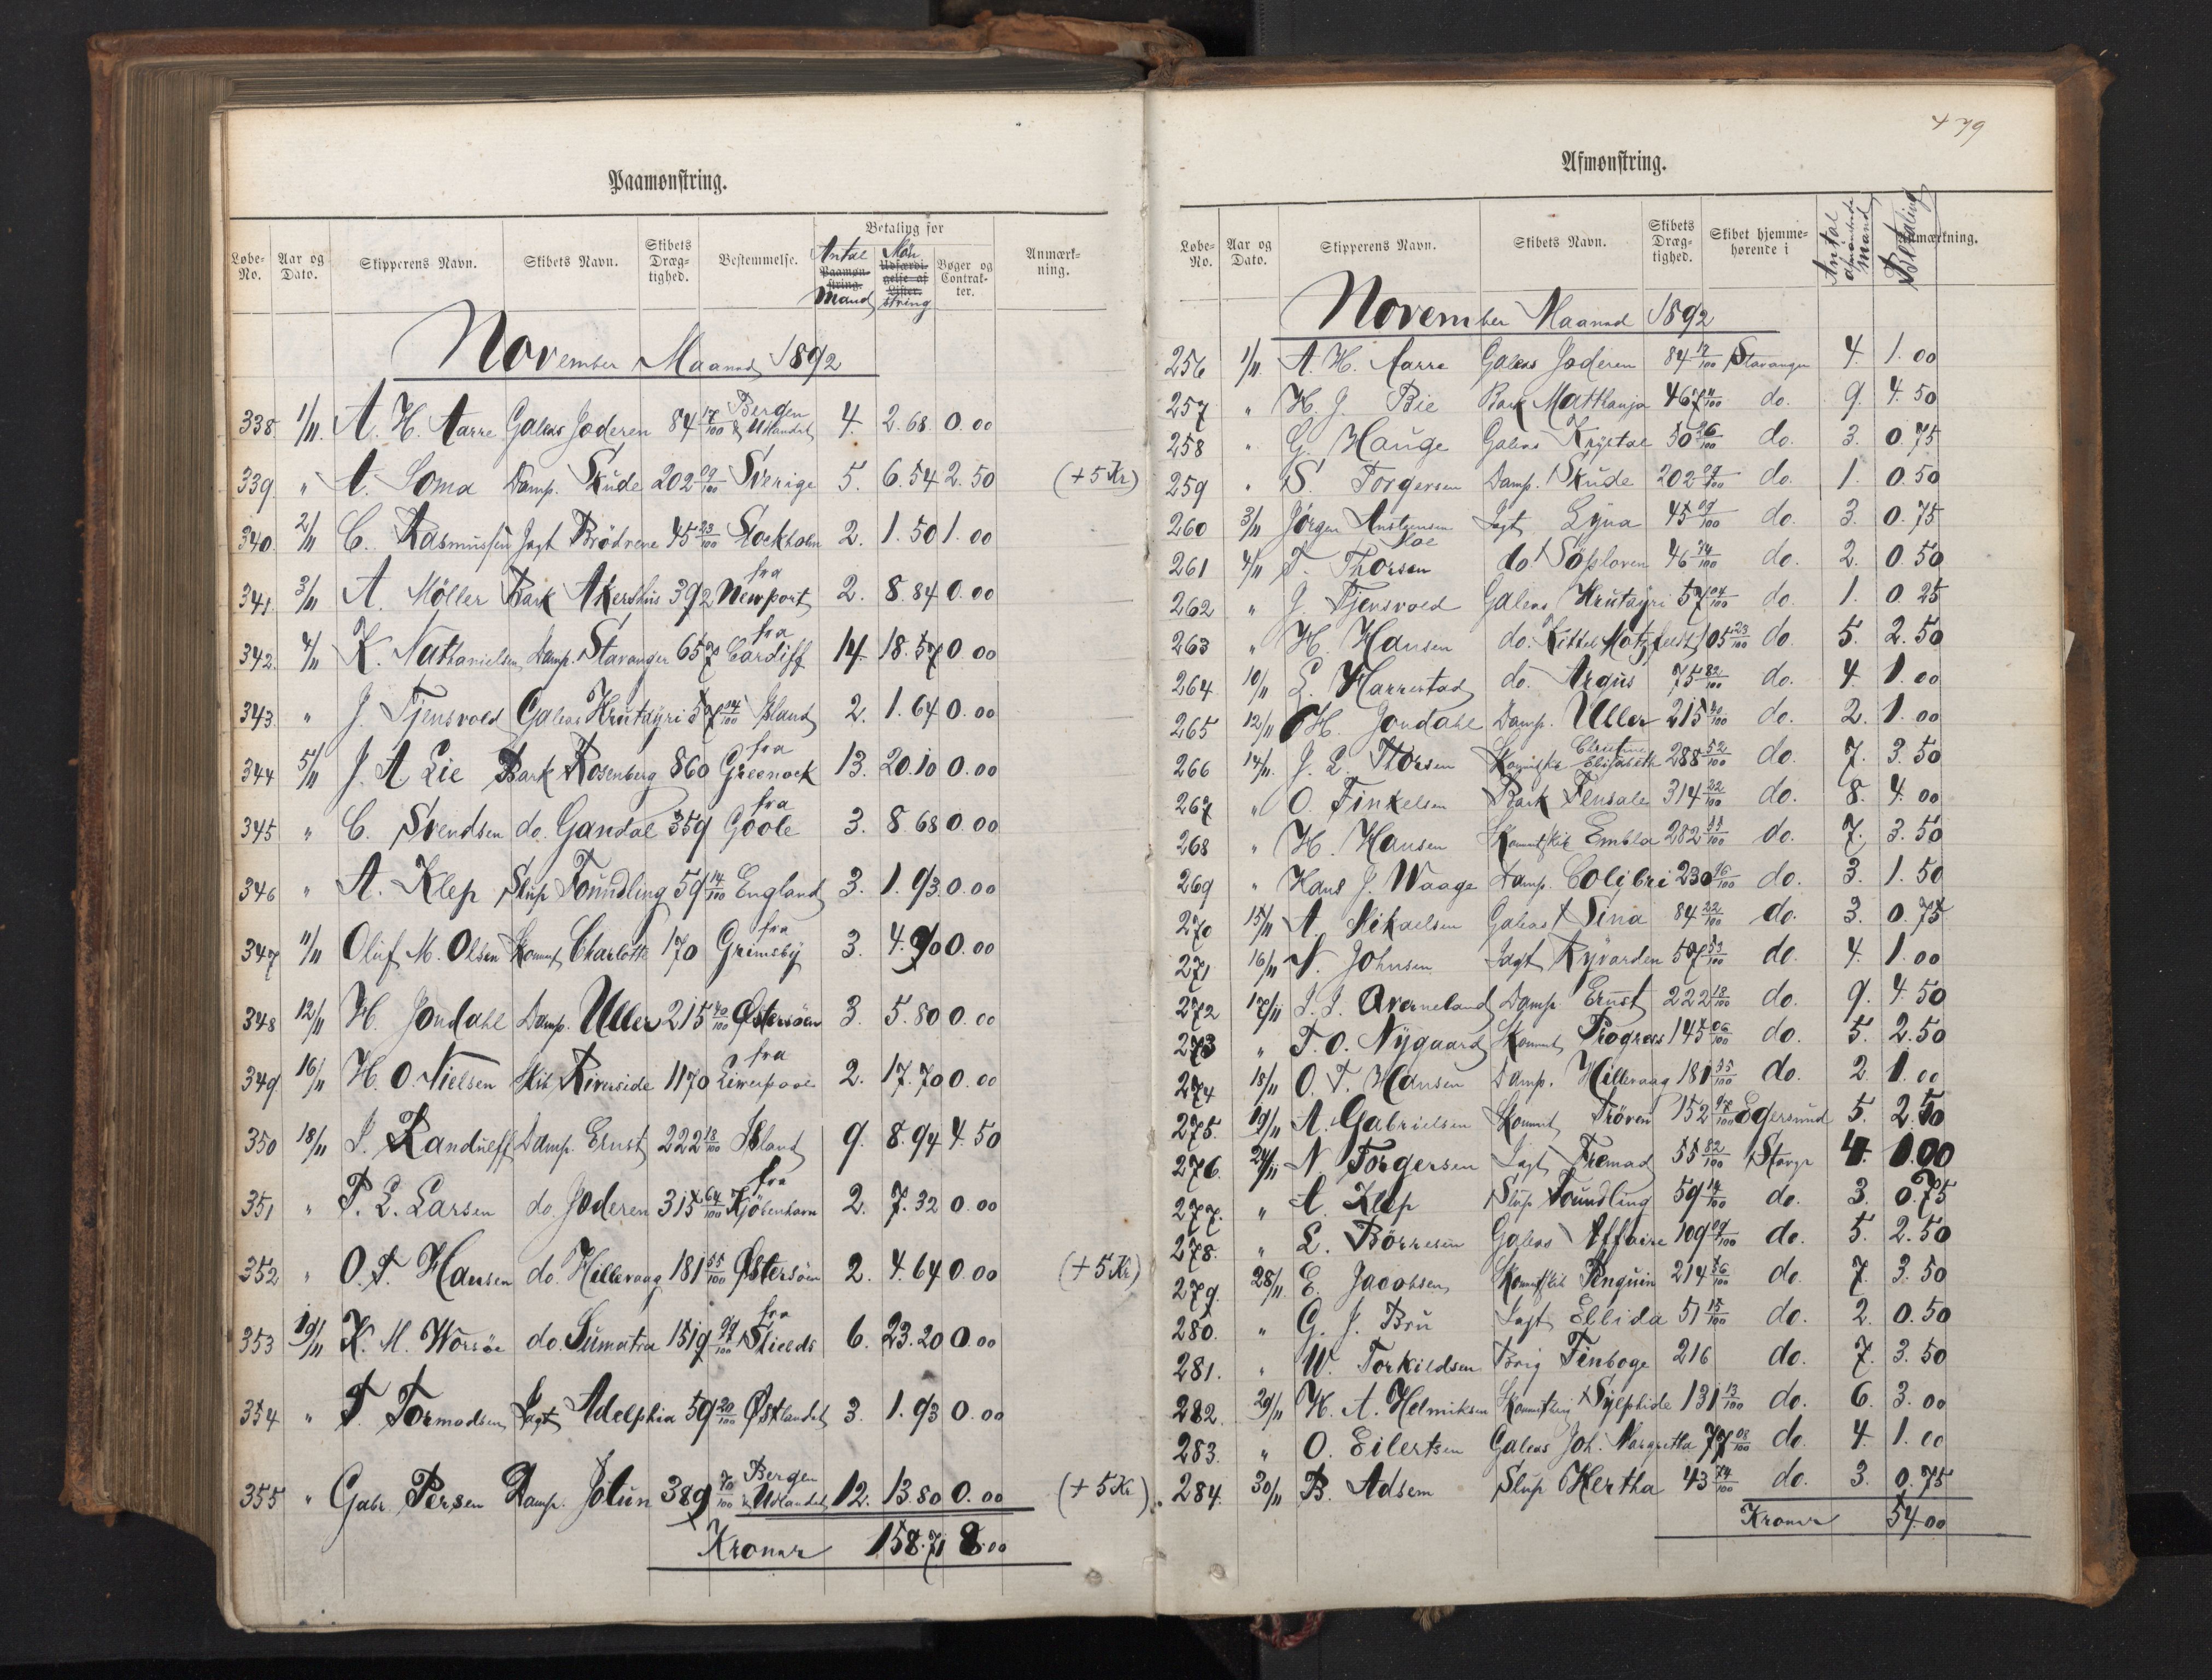 Paamønstring.
Løbe-No. Aar og Dato. Skipperens Navn. Skibets Navn. Skibets Dræg-tighed. Bestemmelse. Betaling for Anmærk-ning.
Antal Paamøn-string. Mand Møn Udfærdi-gelse af Lister. string Bøger og Contrak-ter.
November Maaned 1892
338 1/11 A. H. Aarre Galeas Joderen 84 17/100 Bergen & Udlandet 4. 2.68 0.00
339 " A. Soma Damp. Skude 202 09/100 Sverige 5. 6.54 2.50 (+5 Kr)
340 2/11 C. Rasmussen Jagt Brödrene 45 23/100 Stockholm 2. 1.50 1.00
341 3/11 A. Möller Bark Akershus 392 fra Newport 2. 8.84 0.00
342 4/11 K. Nathanielsen Damp. Stavanger 657 fra Cardiff 14. 18.57 0.00
343 " J. Tjensvold Galeas Hrutayri 57 04/100 Island 2. 1.64 0.00
344 5/11 J. A Lie Bark Rosenberg 860 fra Greenock 13. 20.10 0.00
345 " C. Svendsen do. Gandal 359 fra Goole 3. 8.68 0.00
346 " A. Klep Slup Foundling 59 14/100 England 3. 1.93 0.00
347 11/11 Oluf M. Olsen Skonnt Charlotte 170 fra Grimsby 3. 4.90 0.00
348 12/11 H. Jondahl Damp. Uller 215 40/100 Østersöen 3. 5.80 0.00
349 16/11 H. O. Nielsen Skib Riverside 1170 fra Liverpool 2. 17.70 0.00
350 18/11 J. Randulff Damp. Ernst 222 18/100 Island 9. 8.94 4.50
351 " P. L. Larsen do. Joderen 315 64/100 fra Kjöbenhavn 2. 7.32 0.00
352 " O. T. Hansen do. Hillevaag 181 55/100 Østersöen 2. 4.64 0.00 (+5 Kr)
353 19/11 K. M. Worsöe do. Sumatra 1519 99/100 fra Shields 6. 23.20 0.00
354 " T. Tormodsen Jagt Adelphia 59 20/100 Østlandet 3. 1.93 0.00
355 " Gabr. Persen Damp. Jötun 389 70/100 Bergen & Udlandet 12. 13.80 0.00 (+5 Kr)
Kroner 158.71 8.00
479
Afmønstring.
Løbe-No. Aar og Dato. Skipperens Navn. Skibets Navn. Skibets Dræg-tighed. Skibet hjemme-hørende i Antal afmønstrede Mand Betaling Anmærkning.
November Maaned 1892
256 1/11 A. H. Aarre Galeas Joderen 84 17/100 Stavanger 4. 1.00
257 " H. J. Bie Bark Matthanja 467 14/100 do. 9. 4.50
258 " G. Hauge Galeas Krystal 50 26/100 do. 3. 0.75
259 " S. Torgersen Damp. Skude 202 09/100 do. 1. 0.50
260 3/11 Jörgen Anstensen Moe Jagt Lyna 45 09/100 do. 3. 0.75
261 4/11 T. Thorsen do. Söploven 46 74/100 do. 2. 0.50
262 " J. Tjensvold Galeas Hrutayri 57 04/100 do. 1. 0.25
263 " H. Hansen do. Kittel Motzfeldt 105 23/100 do. 5. 2.50
264 10/11 L. Harrestad do. Argus 75 82/100 do. 4. 1.00
265 12/11 H. Jondahl Damp. Uller 215 40/100 do. 2. 1.00
266 14/11 J. L. Thorsen Skonntskib Christine Elisabeth 288 52/100 do. 7. 3.50
267 " O. Finkelsen Bark Fensalen 314 22/100 do. 8. 4.00
268 " H. Hansen Skonntskib Embla 282 55/100 do. 7. 3.50
269 " Hans J. Waage Damp. Colibri 230 96/100 do. 3. 1.50
270 15/11 A. Mikaelsen Galeas Sina 84 22/100 do. 3. 0.75
271 16/11 N. Johnsen Jagt Ryvarden 57 53/100 do. 4. 1.00
272 17/11 J. J. Qverneland Damp. Ernst 222 18/100 do. 9. 4.50
273 " T. O. Nygaard Skonnt Progress 145 06/100 do. 5. 2.50
274 18/11 O. T. Hansen Damp. Hillevaag 181 55/100 do. 2. 1.00
275. 19/11 A. Gabrielsen Skonnt Pröven 152 97/100 Egersund 5. 2.50
276. 24/11 N. Torgersen Jagt Fremad 55 82/100 Stavgr 4. 1.00
277. " A. Klep Slup Foundling 59 14/100 do. 3. 0.75
278. " L. Börresen Galeas Affaire 109 09/100 do. 5. 2.50
279. 28/11 E. Jacobsen Skonntskib Penguin 214 56/100 do. 7. 3.50
280. " G. J. Bru Jagt Ellida 51 15/100 do. 2. 0.50
281. " W. Torkildsen Brig Finboge 216 do. 7. 3.50
282. 29/11 H. A. Helmiksen Sylphide 131 13/100 do. 6. 3.00
283. " O. Eilertsen Galeas Joh. Margretha 77 08/100 do. 4. 1.00
284. 30/11 B. Adsem Slup Hertha 43 74/100 do. 3. 0.75
Kroner 54.00